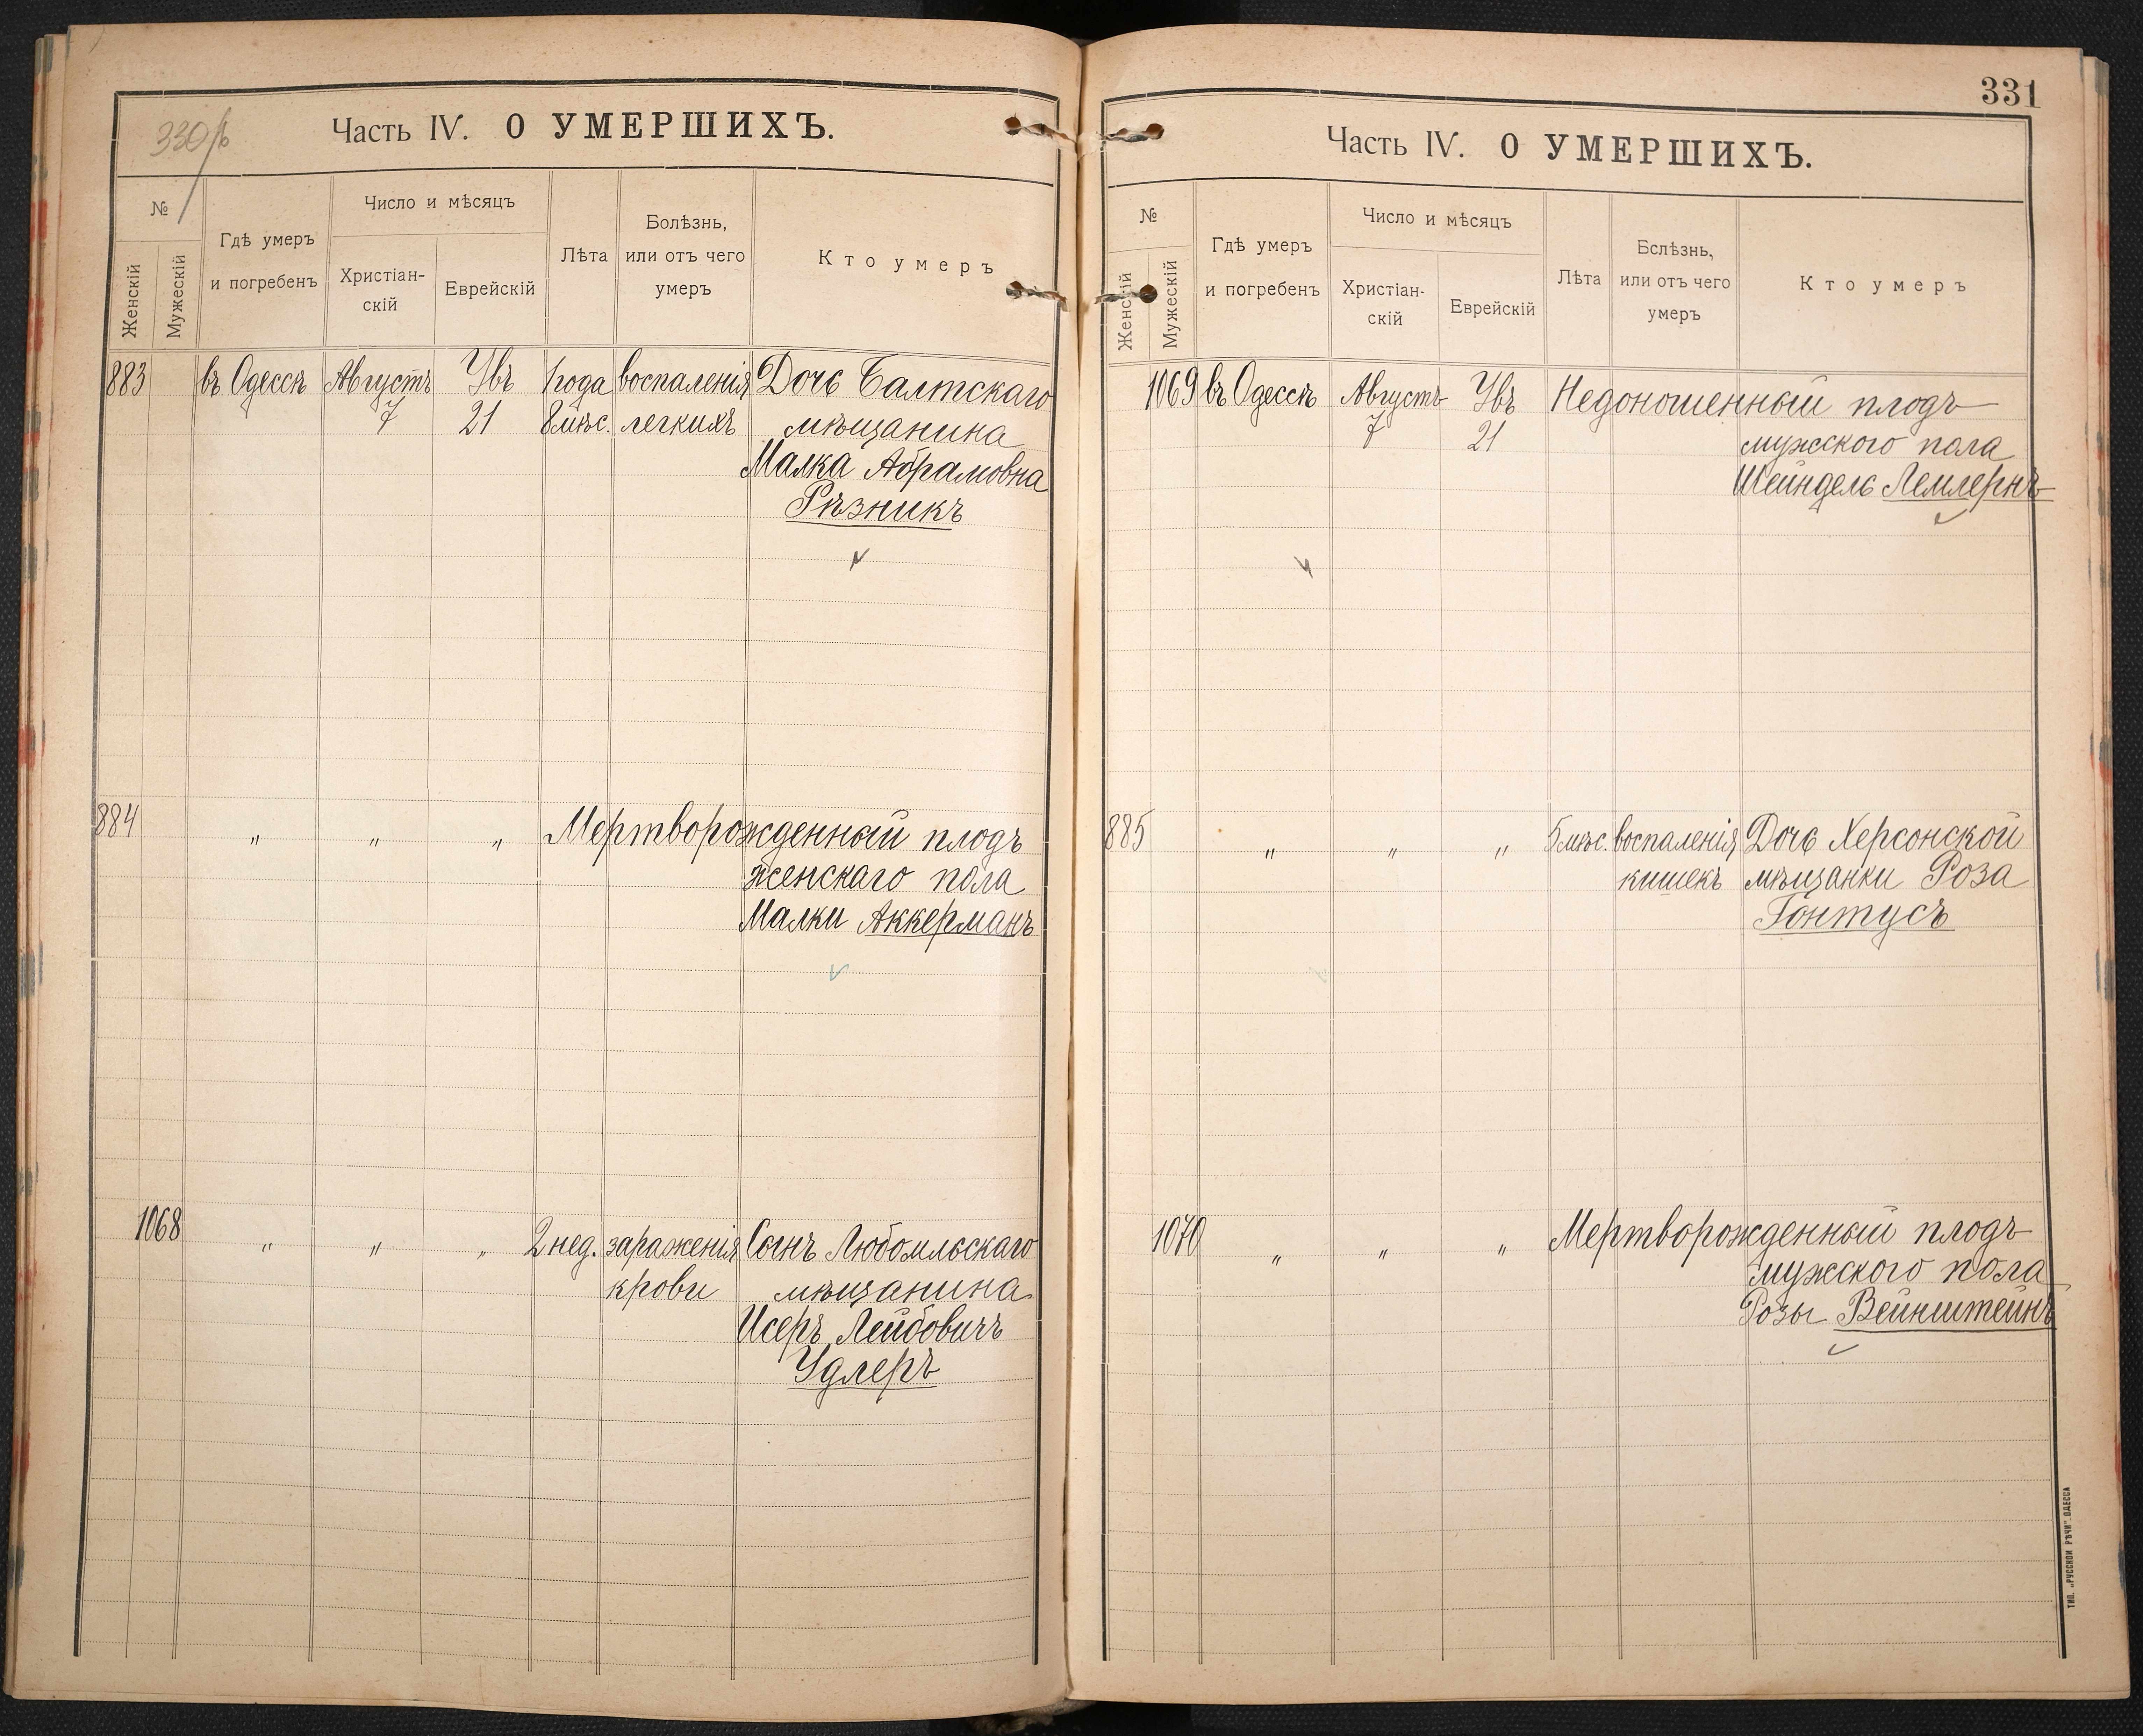 330/б
Часть IV. О УМЕРШИХЪ.
№
Женскій
Мужескій
Гдѣ умеръ
и погребенъ
Число и мѣсяцъ
Христіан-
скій
Еврейскій
Лѣта
Болѣзнь,
или отъ чего
умеръ
Кто умеръ
883 въ Одессѣ Августъ Увъ 1 года воспаленія Дочь Балтскаго
7 21 8 мѣс. легкихъ мѣщанина
Малка Абрамовна
Рѣзникъ
884 „ „ „ Мертворожденный плодъ
женскаго пола
Малки Аккерманъ
1068 „ „ „ 2 нед. зараженія Сынъ Любомльскаго
крови мѣщанина
Исеръ Лейбовичъ
Удлеръ
331
Часть IV. О УМЕРШИХЪ.
№
Женскій
Мужескій
Гдѣ умеръ
и погребенъ
Число и мѣсяцъ
Христіан-
скій
Еврейскій
Лѣта
Бслѣзнь,
или отъ чего
умеръ
Кто умеръ
1069 въ Одессѣ Августъ Увъ Недоношенный плодъ
7 21 мужского пола
Шейндель Лемлернъ
885 „ „ „ 5 мѣс. воспаленія Дочь Херсонской
кишекъ мѣщанки Роза
Гонтусъ
1070 „ „ „ Мертворожденный плодъ
мужского пола
Розы Вейнштейнъ
ТИП. „РУССКОЙ РѢЧИ“. ОДЕССА